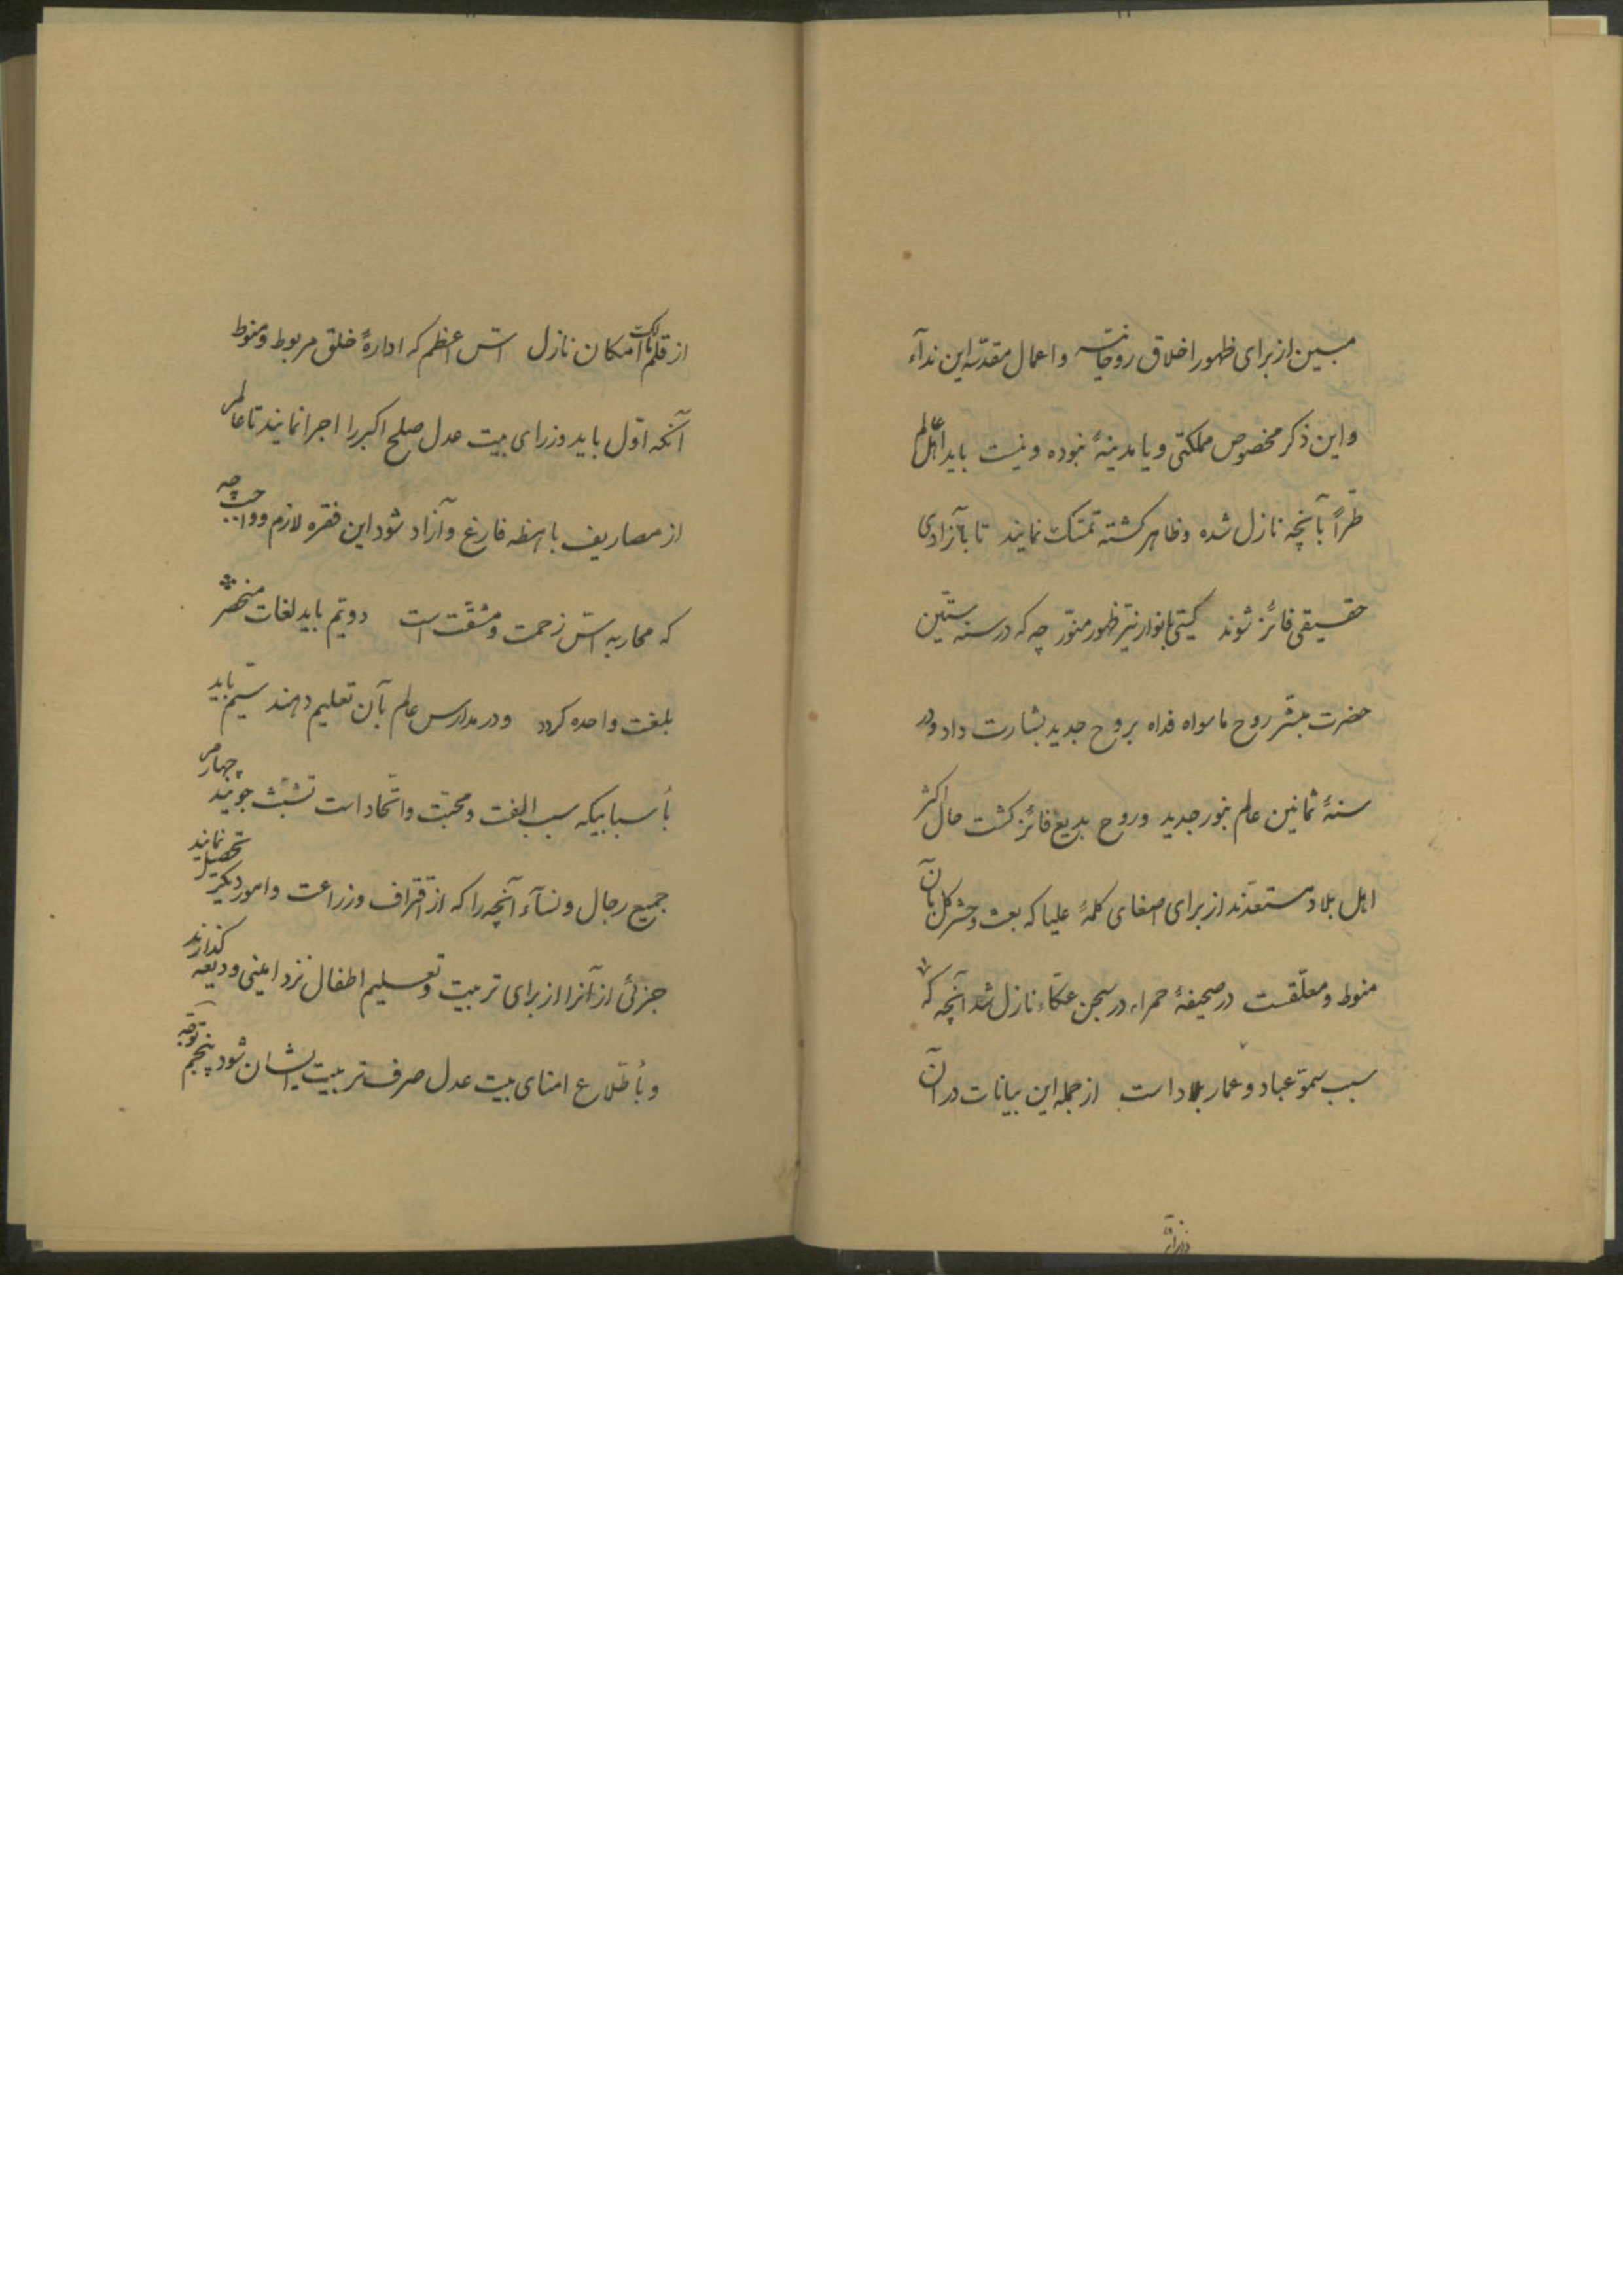 مبین از برای ظهور اخلاق روحانیّه و اعمال مقدّسه این ندآء
و این ذکر مخصوص مملکتی و یا مدینهٔ نبوده و نیست باید اهل عالم
طرّاً بآنچه نازل شده و ظاهر گشته تمسّک نمایند تا بآزادی
حقیقی فائز شوند گیتی بانوار نیّر ظهور منوّر چه که در سنه ستّین
حضرت مبشّر روح ما سواه فداه بروح جدید بشارت داد و در
سنهٔ ثمانین عالم بنور جدید و روح بدیع فائز گشت حال اکثر
اهل بلاد مستعدّند از برای اصغای کلمهٔ علیا که بعث و حشر کل بآن
منوط و معلّقست در صحیفهٔ حمراء در سجن عکّاء نازل شد آنچه که
سبب سموّ عباد و عمار بلاد است از جمله این بیانات در آن
از قلم مالک امکان نازل اسّ اعظم که ادارهٔ خلق مربوط و منوط
آنکه اوّل باید وزرای بیت عدل صلح اکبر را اجرا نمایند تا عالم
از مصاریف باهظه فارغ و آزاد شود این فقره لازم و واجب چه
که محاربه اسّ زحمت و مشقّت است دویّم باید لغات منحصر
بلغت واحده گردد و در مدارس عالم بآن تعلیم دهند سیّم باید
بأسبابیکه سبب الفت و محبّت و اتّحاد است تشبّث جویند چهارم
جمیع رجال و نسآء آنچه را که از اقتراف و زراعت و امور دیگر تحصیل نمایند
جزئی از آنرا از برای تربیت و تعلیم اطفال نزد امینی ودیعه گذارند
و بأطّلاع امنای بیت عدل صرف تربیت ایشان شود پنجم توجّه